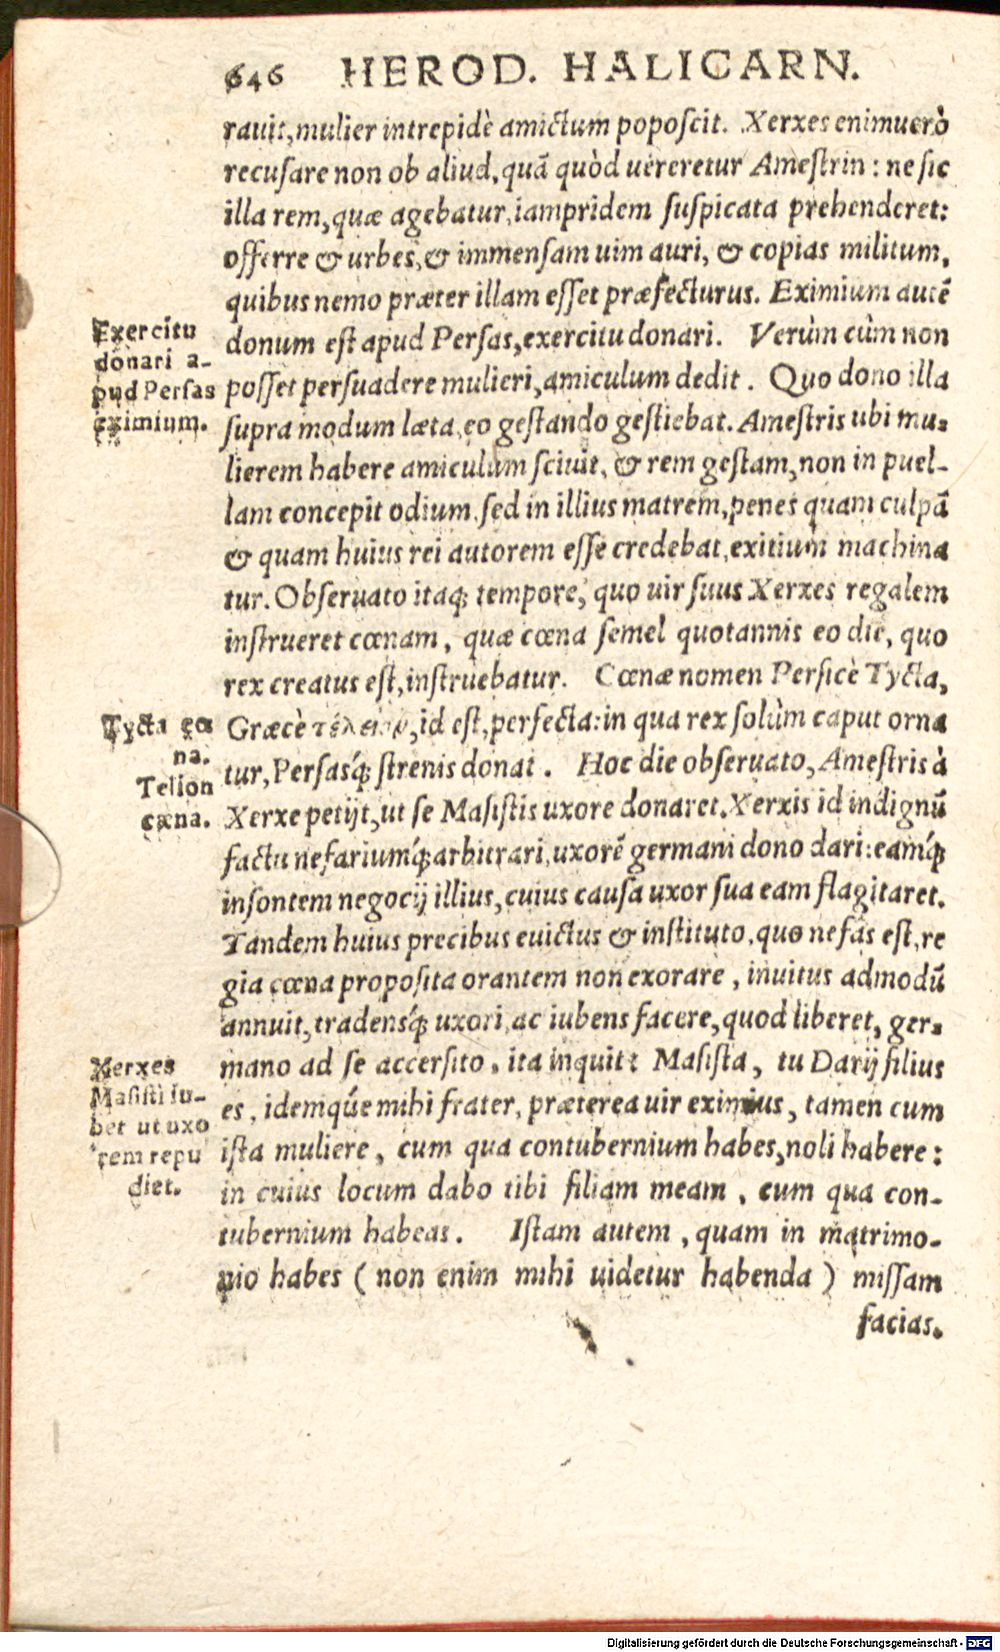 646 HEROD. HALICARN.
rauit, mulier intrepidè amictum poposcit. Xerxes enimuerò
recusare non ob aliud, quã quòd uereretur Amestrin: ne sic
illa rem, quæ agebatur, iampridem suspicata prehenderet:
offerre & urbes, & immensam uim auri, & copias militum,
quibus nemo præter illam esset præfecturus. Eximium autẽ
donum est apud Persas, exercitu donari. Verùm cùm non
posset persuadere mulieri, amiculum dedit. Quo dono illa
supra modum læta, eo gestando gestiebat. Amestris ubi mu-
lierem habere amiculum sciuit, & rem gestam, non in puel-
lam concepit odium, sed in illius matrem, penes quam culpã
& quam huius rei autorem esse credebat, exitium machina
tur. Obseruato itaq; tempore, quo uir suus Xerxes regalem
instrueret cœnam, quæ cœna semel quotannis eo die, quo
rex creatus est, instruebatur. Cœnæ nomen Persicè Tycta,
Græcè τέλειον, id est, perfecta: in qua rex solùm caput orna
tur, Persasq́; strenis donat. Hoc die obseruato, Amestris à
Xerxe petijt, ut se Masistis uxore donaret. Xerxis id indignũ
factu nefariumq́; arbitrari, uxorẽ germani dono dari: eamq́;
insontem negocij illius, cuius causa uxor sua eam flagitaret.
Tandem huius precibus euictus & instituto, quo nefas est, re
gia cœna proposita orantem non exorare, inuitus admodũ
annuit, tradensq́; uxori, ac iubens facere, quod liberet, ger-
mano ad se accersito, ita inquit: Masista, tu Darij filius
es, idemqúe mihi frater, præterea uir eximius, tamen cum
ista muliere, cum qua contubernium habes, noli habere:
in cuius locum dabo tibi filiam meam, cum qua con-
tubernium habeas. Istam autem, quam in matrimo-
nio habes (non enim mihi uidetur habenda) missam
facias.
Exercitu
donari a-
pud Persas
eximium.
Tycta cœ
na.
Telion
cœna.
Xerxes
Masisti iu-
bet ut uxo
rem repu
diet.
Digitalisierung gefördert durch die Deutsche Forschungsgemeinschaft - DFG